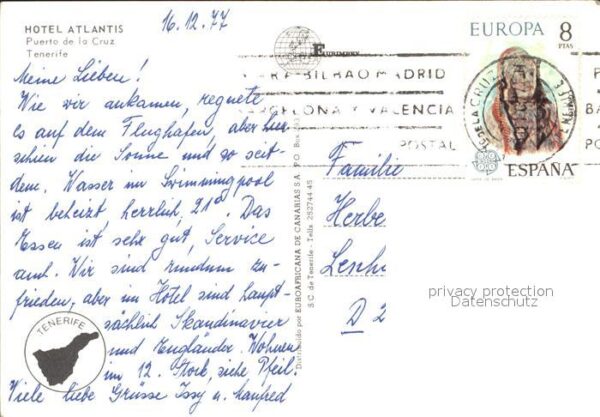 HOTEL ATLANTIS
Puerto de la Cruz
Tenerife
16.12.77
Meine Lieben!
Wie wir ankamen, regnete
es auf dem Flughafen, aber hier
schien die Sonne und so seit-
dem. Wasser im Swimmingpool
ist beheizt, herrlich, 21°. Das
Essen ist sehr gut, Service
auch. Wir sind rundum zu-
frieden, aber im Hotel sind haupt-
sächlich Skandinavier
und Engländer. Wohnen
im 12. Stock, siehe Pfeil.
Viele liebe Grüsse Issy u. Manfred
TENERIFE
Distribuido por EUROAFRICANA DE CANARIAS S.A.
S.C. de Tenerife - Telfs. 252744-45
BILBAO MADRID
Y VALENCIA
POSTAL
EUROPA 8
PTAS
ESPAÑA
Familie
Herbe
D 2
privacy protection
Datenschutz